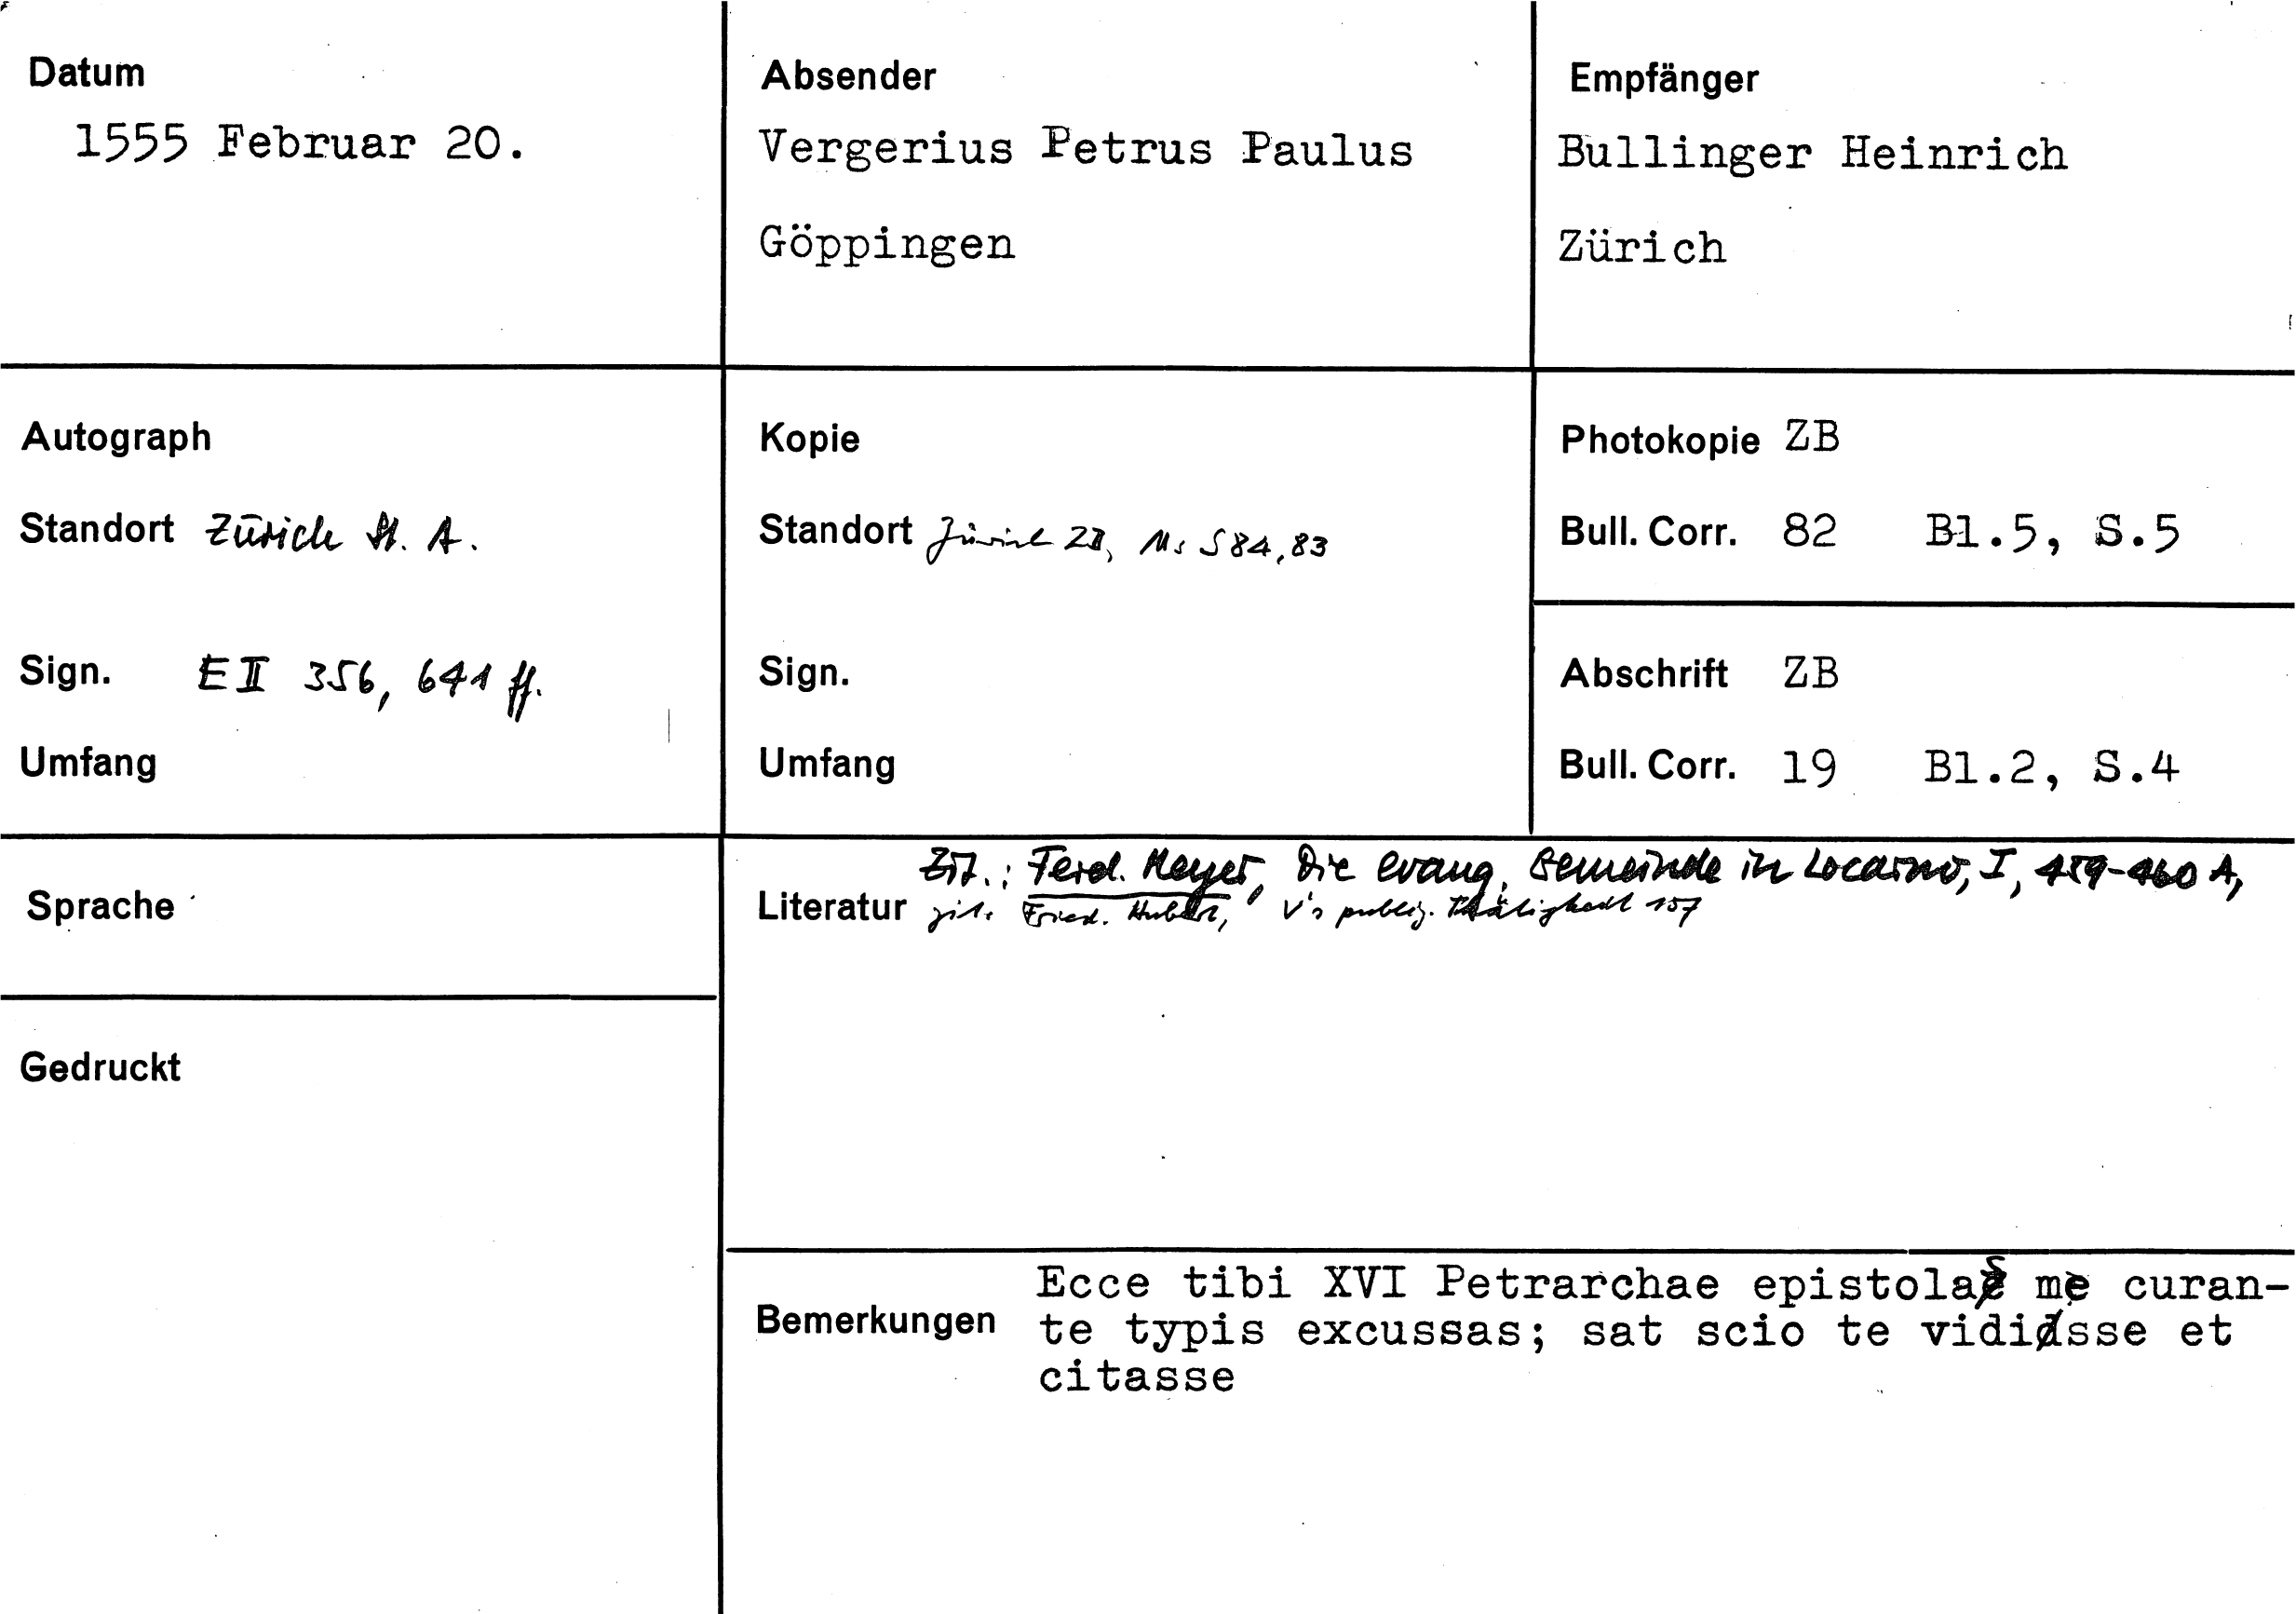 Datum
1555 Februar 20.
Absender
Vergerius Petrus Paulus
Göppingen
Empfänger
Bullinger Heinrich
Zürich
Autograph
Standort Zürich St. A.
Sign. E II 356, 641 ff.
Umfang
Kopie
Standort Zürich ZB, Ms S 84, 83
Sign.
Umfang
Photokopie ZB
Bull. Corr. 82 Bl.5, S.5
Abschrift ZB
Bull. Corr. 19 Bl.2, S.4
Sprache
Gedruckt
Zit.: Ferd. Meyer, Die evang. Gemeinde in Locarno, I, 459-460 A,
Literatur zit. Fried. Hubert, V's publiz. Thätigkeit 157
Bemerkungen
Ecce tibi XVI Petrarchae epistolas me curan-
te typis excussas; sat scio te vidisse et
citasse